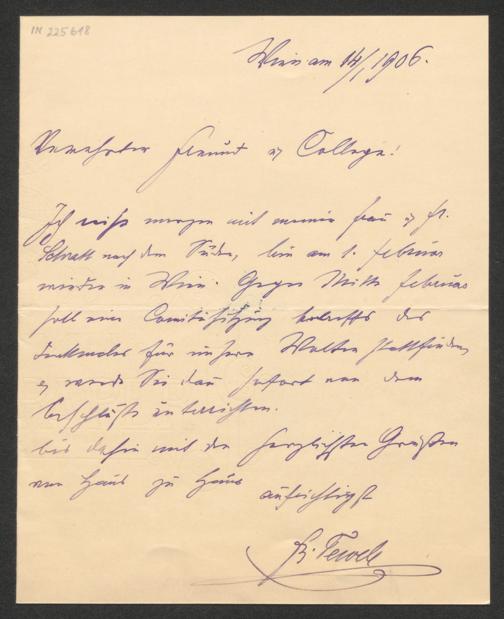 IN 225618
Wien am 14/1 1906.
Verehrter Freund u College!
Ich reise morgen mit meiner Frau u Fr.
Schratt nach dem Süden, bin am 1. Februar
wieder in Wien. Gegen Mitte Februar
soll eine Comitésitzung betreffs des
Denkmales für unsern Walter stattfinden,
u werde Sie dan sofort von dem
Beschlusse unterrichten.
bis dahin mit den herzlichsten Grüßen
von Haus zu Haus
aufrichtigst
F. Tewele